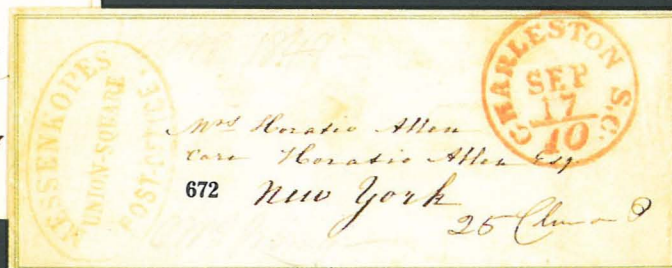 MESSENKOPES
UNION-SQUARE
POST-OFFICE.
CHARLESTON S.C.
SEP
17
10
Mrs Horatio Allen
Care Horatio Allen Esq.
672
New York
25